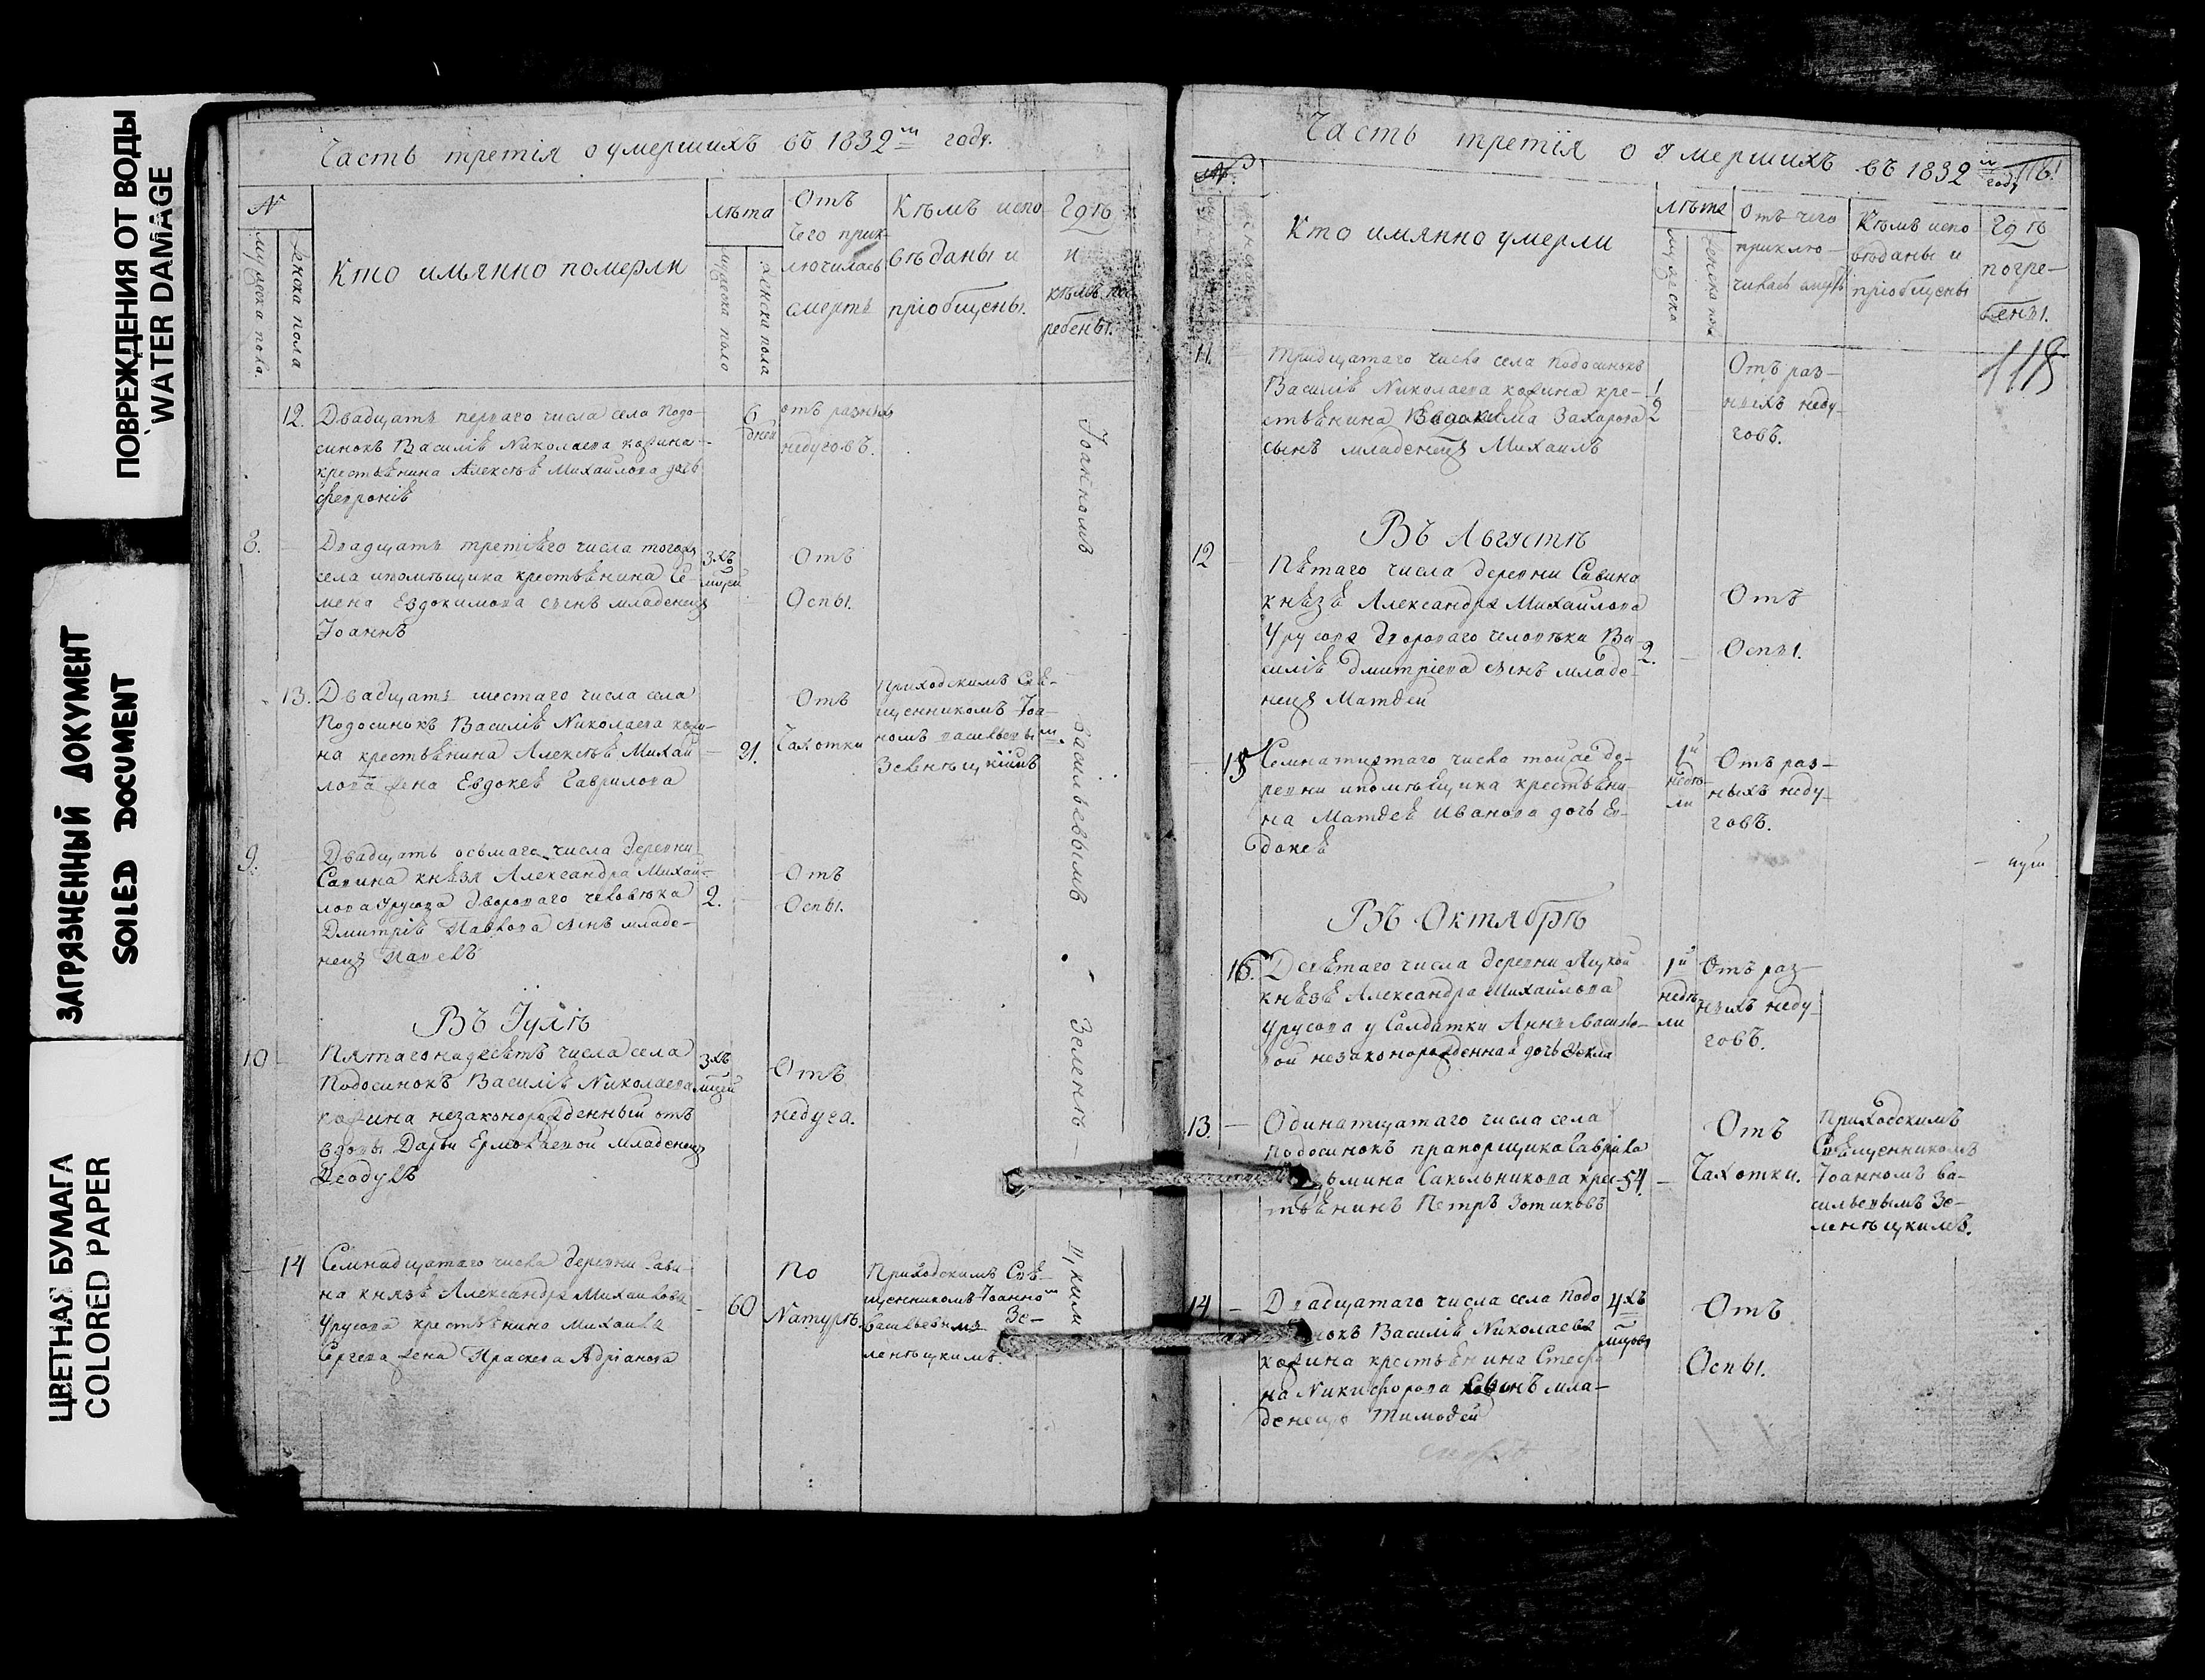 ПОВРЕЖДЕНИЯ ОТ ВОДЫ
WATER DAMAGE
ЗАГРЯЗНЕННЫЙ ДОКУМЕНТ
SOILED DOCUMENT
ЦВЕТНАЯ БУМАГА
COLORED PAPER
Часть третія о умершихъ въ 1832м году.
№
мужеска пола.
женска пола
Кто имянно померли
лѣта
мужеска пола
женска пола
Отъ
чего прик-
лючилась
смерть
Кѣмъ испо
вѣданы и
пріобщены.
Гдѣ
и
кѣмъ по
гребены.
12.
Двадцать перваго числа села Подо-
синокъ Василія Николаева
крестьянина Алексѣя Михайлова дочь
Феѵронія
6
дней
отъ разныхъ
недуговъ.
8.
Двадцать третьяго числа тогожъ
села ипомѣщика крестьянина Се-
мена Евдокимова сынъ младенецъ
Іоаннъ
3хъ
Отъ
Оспы.
13.
Двадцать шестаго числа села
Подосинокъ Василія Николаева
на крестьянина Алексѣя Михай
лова жена Евдокея Гаврилова
21.
Отъ
Чахотки
Приходскимъ Свя-
щенникомъ Іоа-
номъ васильевым.
9.
Двадцать осьмаго числа деревни
Савина князя Александра Михай-
лова Урусова двороваго человѣка
Дмитрія Павлова сынъ младе-
нецъ Павелъ
2.
Отъ
Оспы.
Въ Іулѣ
10
Пятагонадесять числа села
Подосинокъ Василія Николаева
незаконорожденный отъ
вдовы Дарьи Ермолаевой младенецъ
Ѳеодулъ
3хъ
Отъ
недуга.
14
Семнадцатаго числа деревни Сави-
на князя Александра Михайлова
Урусова крестьянина Михаила
Сергева жена Праскева Адріанова
60
По
Натурѣ.
Приходскимъ Свя-
щенникомъ Іоанно
васильевымъ Зе-
ленѣцкимъ.
Іоанномъ Васильевымъ Зеленѣ-
цким
Часть третія о умершихъ въ 1832м году
№
116
Кто имянно умерли
лѣта
мужеска
женска пол
Отъ чего
приклю-
чилась смерть
Кѣмъ испо
вѣданы и
пріобщены
Гдѣ
погре-
бены.
118
11.
Тридцатаго числа села Подосинокъ
Василія Николаева кре-
стьянина Захарова
сынъ младенецъ Михаилъ
2
Отъ раз-
ныхъ неду-
говъ.
Въ Августѣ
12
Пятаго числа деревни Савина
князя Александра Михайлова
Урусова двороваго человѣка Ва-
силія Дмитріева сынъ младе-
нецъ Матѳей
2.
Отъ
Оспы.
15
Семнатцатаго числа тойже де-
ревни ипомѣщика крестьяни-
на Матѳея Иванова дочь Ев-
докея
1й
недѣ-
ли
Отъ раз-
ныхъ неду-
говъ.
Въ Октябрѣ
16.
Девятаго числа деревни
князя Александра Михайлова
Урусова у Солдатки Анны Василь-
вой незаконорожденная дочь Ѳекла
1й
недѣ-
ли
Отъ раз-
ныхъ неду-
говъ.
13.
Одинатцатаго числа села
Подосинокъ прапорщика Гаврила
Сакольникова крес-
тьянинъ Петръ Зотиковъ
54.
Отъ
Чахотки.
Приходскимъ
Священникомъ
Іоанномъ Ва-
сильевымъ Зе-
ленѣцкимъ.
14.
Двадцатаго числа села Подо
нокъ Василія Николаева
крестьянина Стефа
на Никифорова сынъ мла-
денецъ Тимоѳей
4хъ
Отъ
Оспы.